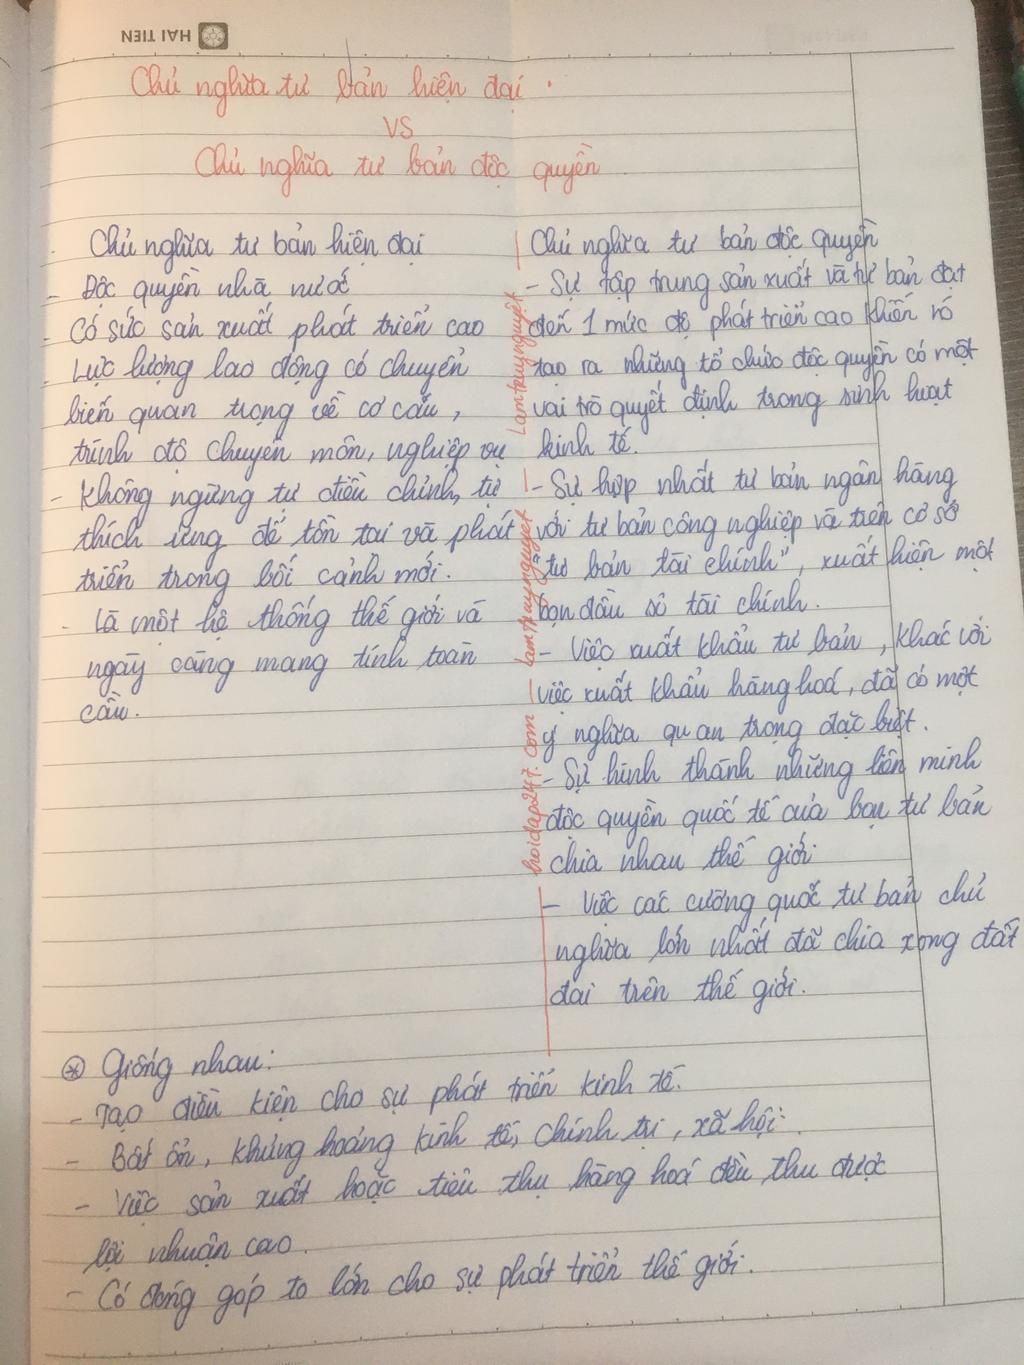 HẢI TIẾN
Chủ nghĩa tư bản hiện đại.
VS
Chủ nghĩa tư bản độc quyền
Chủ nghĩa tư bản hiện đại
- Độc quyền nhà nước
- Có sức sản xuất phát triển cao
- Lực lượng lao động có chuyển
biến quan trọng về cơ cấu,
trình độ chuyên môn, nghiệp vụ
- Không ngừng tự điều chỉnh, tự
thích ứng để tồn tại và phát
triển trong bối cảnh mới.
- Là một hệ thống thế giới và
ngày càng mang tính toàn
cầu.
hoidap247.com - lamtruynguyet - lamtruynguyet
Chủ nghĩa tư bản độc quyền
- Sự tập trung sản xuất và tư bản đạt
đến 1 mức độ phát triển cao khiến nó
tạo ra những tổ chức độc quyền có một
vai trò quyết định trong sinh hoạt
kinh tế.
- Sự hợp nhất tư bản ngân hàng
với tư bản công nghiệp và trên cơ sở
"tư bản tài chính", xuất hiện một
bọn đầu sỏ tài chính.
- Việc xuất khẩu tư bản, khác với
việc xuất khẩu hàng hoá, đã có một
ý nghĩa quan trọng đặc biệt.
- Sự hình thành những liên minh
độc quyền quốc tế của bọn tư bản
chia nhau thế giới
- Việc các cường quốc tư bản chủ
nghĩa lớn nhất đã chia xong đất
đai trên thế giới.
* Giống nhau:
- Tạo điều kiện cho sự phát triển kinh tế.
- Bất ổn, khủng hoảng kinh tế, chính trị, xã hội.
- Việc sản xuất hoặc tiêu thụ hàng hoá đều thu được
lợi nhuận cao.
- Có đóng góp to lớn cho sự phát triển thế giới.